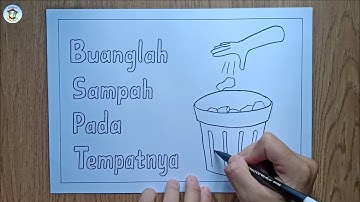 Buanglah
Sampah
Pada
Tempatnya